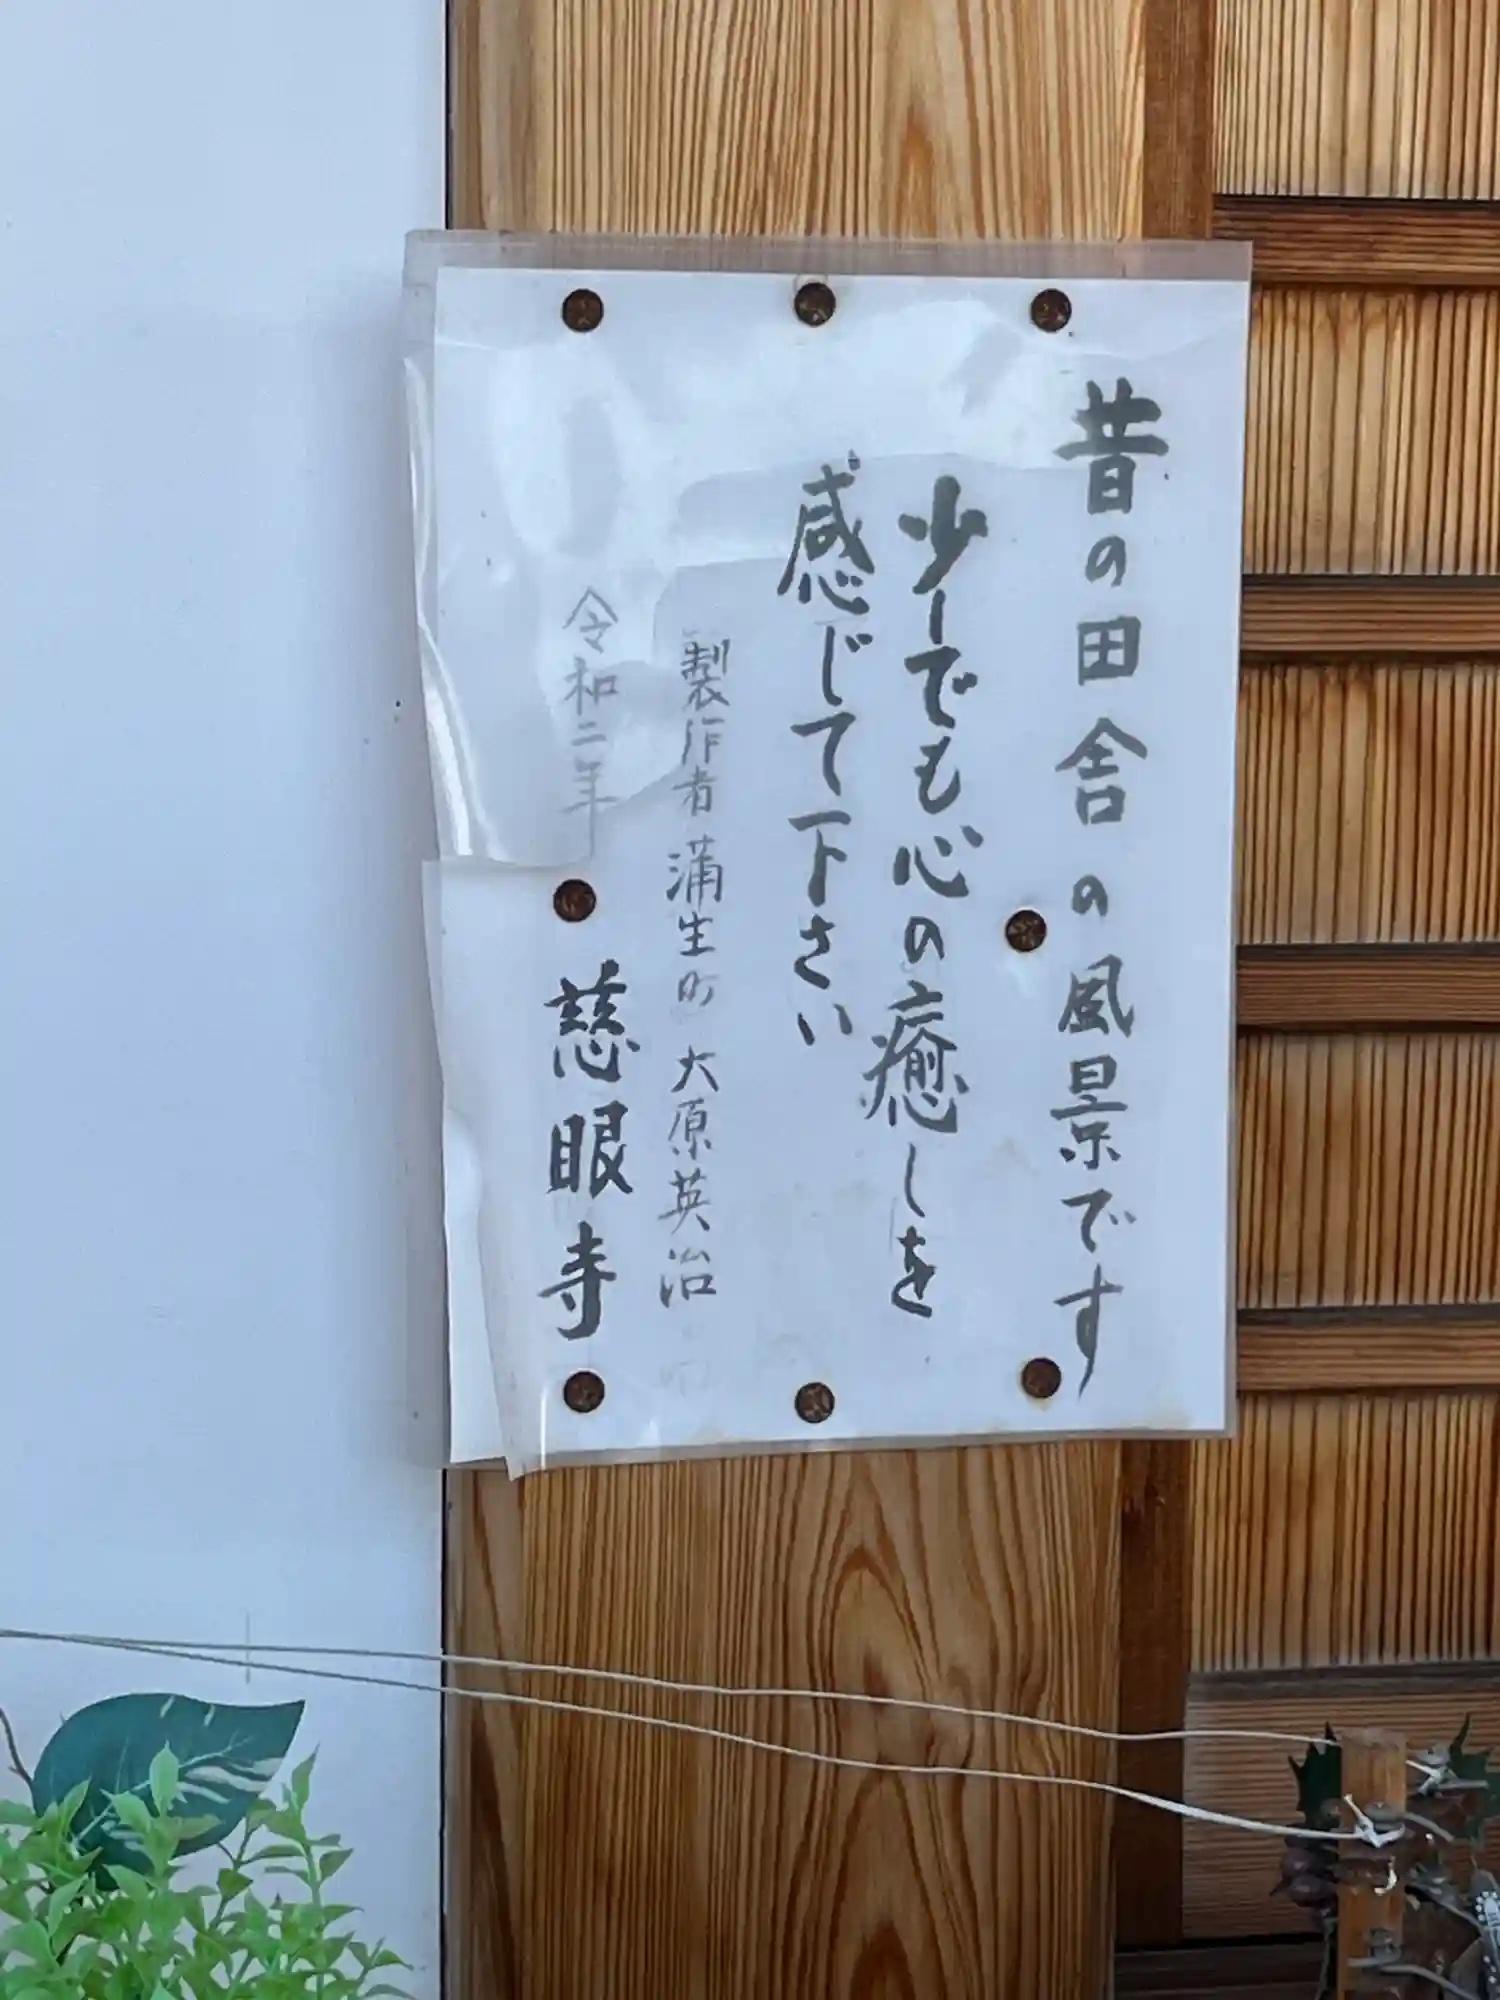 昔の田舎の風景です
少しでも心の癒しを
感じて下さい
製作者 蒲生町 大原英治
令和二年 慈眼寺